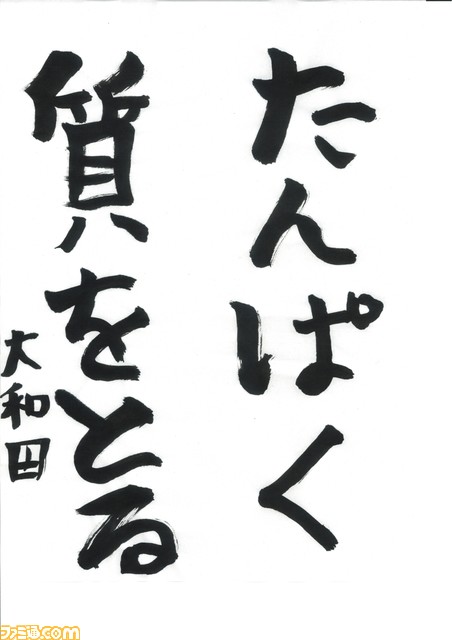 たんぱく
質をとる
大和田
ファミ通.com